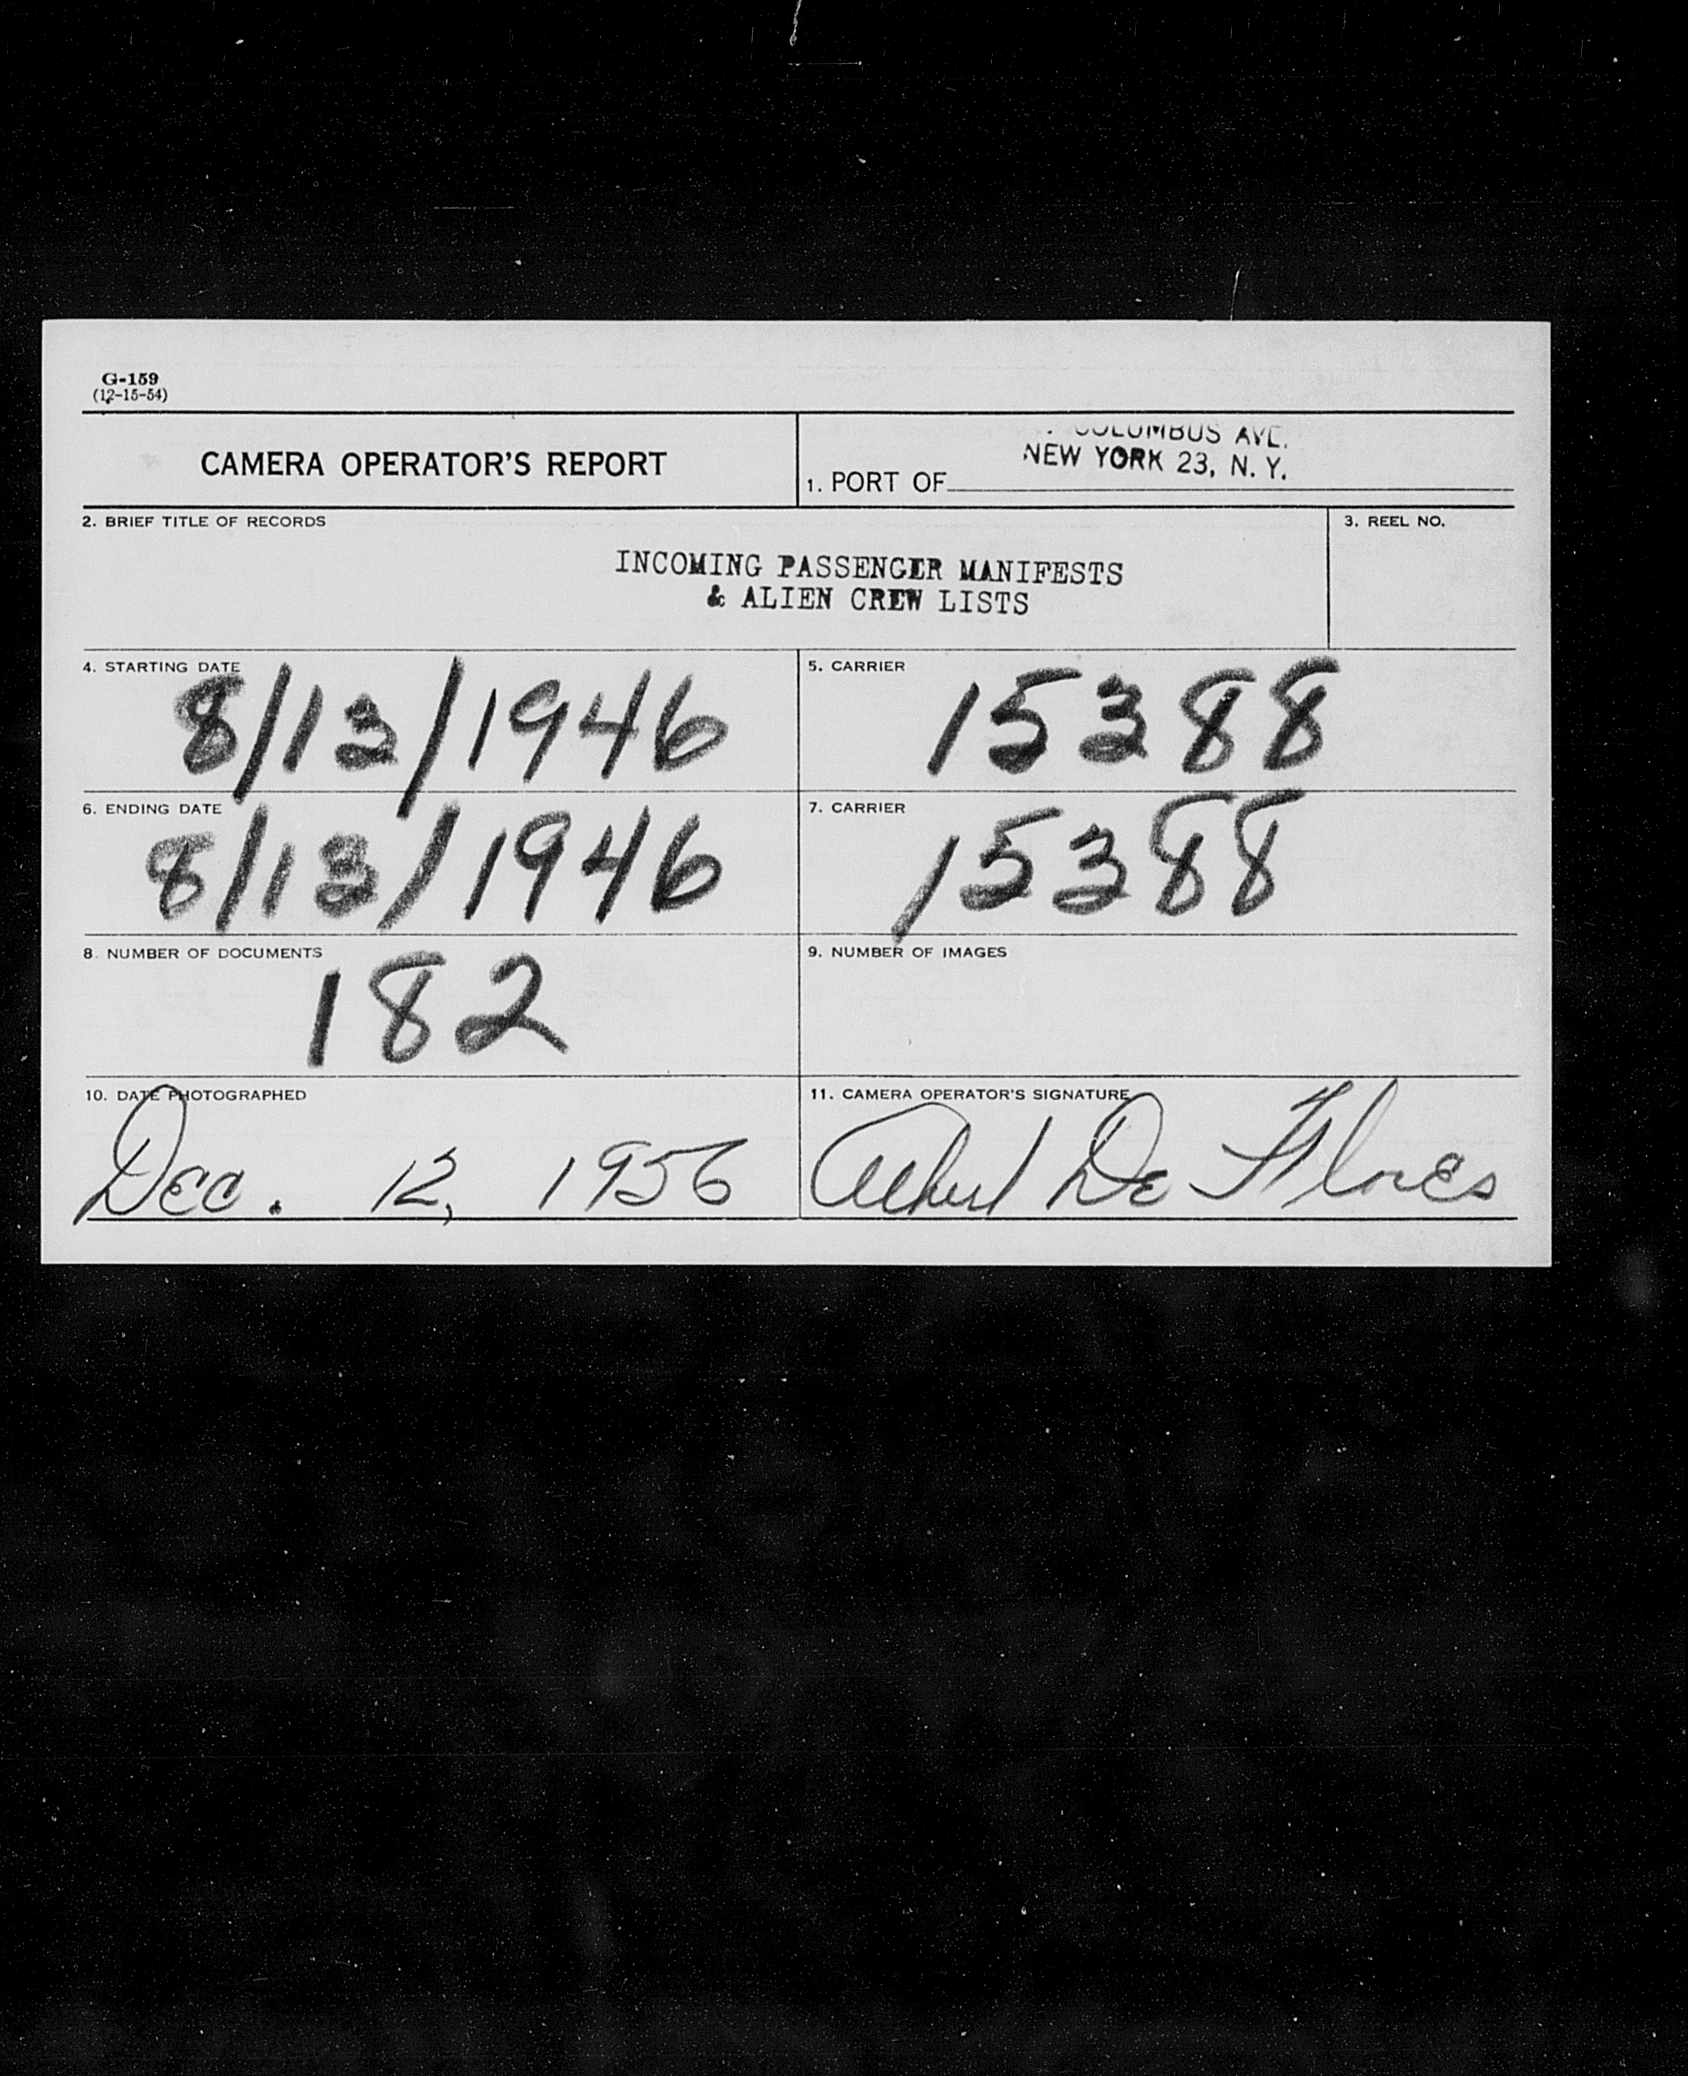 G-159
(12-15-54)
CAMERA OPERATOR'S REPORT
COLUMBUS AVE.
NEW YORK 23, N. Y.
1. PORT OF
2. BRIEF TITLE OF RECORDS
3. REEL NO.
INCOMING PASSENGER MANIFESTS
& ALIEN CREW LISTS
4. STARTING DATE
8/13/1946
5. CARRIER
15388
6. ENDING DATE
8/13/1946
7. CARRIER
15388
8. NUMBER OF DOCUMENTS
182
9. NUMBER OF IMAGES
10. DATE PHOTOGRAPHED
Dec. 12, 1956
11. CAMERA OPERATOR'S SIGNATURE
Albert De Flores